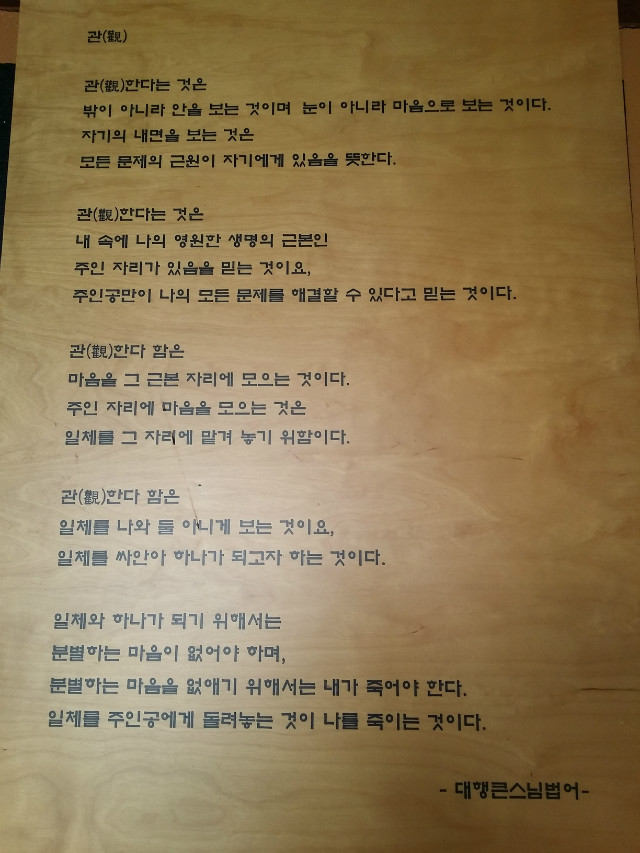 관(觀)
관(觀)한다는 것은
밖이 아니라 안을 보는 것이며 눈이 아니라 마음으로 보는 것이다.
자기의 내면을 보는 것은
모든 문제의 근원이 자기에게 있음을 뜻한다.
관(觀)한다는 것은
내 속에 나의 영원한 생명의 근본인
주인 자리가 있음을 믿는 것이요,
주인공만이 나의 모든 문제를 해결할 수 있다고 믿는 것이다.
관(觀)한다 함은
마음을 그 근본 자리에 모으는 것이다.
주인 자리에 마음을 모으는 것은
일체를 그 자리에 맡겨 놓기 위함이다.
관(觀)한다 함은
일체를 나와 둘 아니게 보는 것이요,
일체를 싸안아 하나가 되고자 하는 것이다.
일체와 하나가 되기 위해서는
분별하는 마음이 없어야 하며,
분별하는 마음을 없애기 위해서는 내가 죽어야 한다.
일체를 주인공에게 돌려놓는 것이 나를 죽이는 것이다.
- 대행큰스님법어-